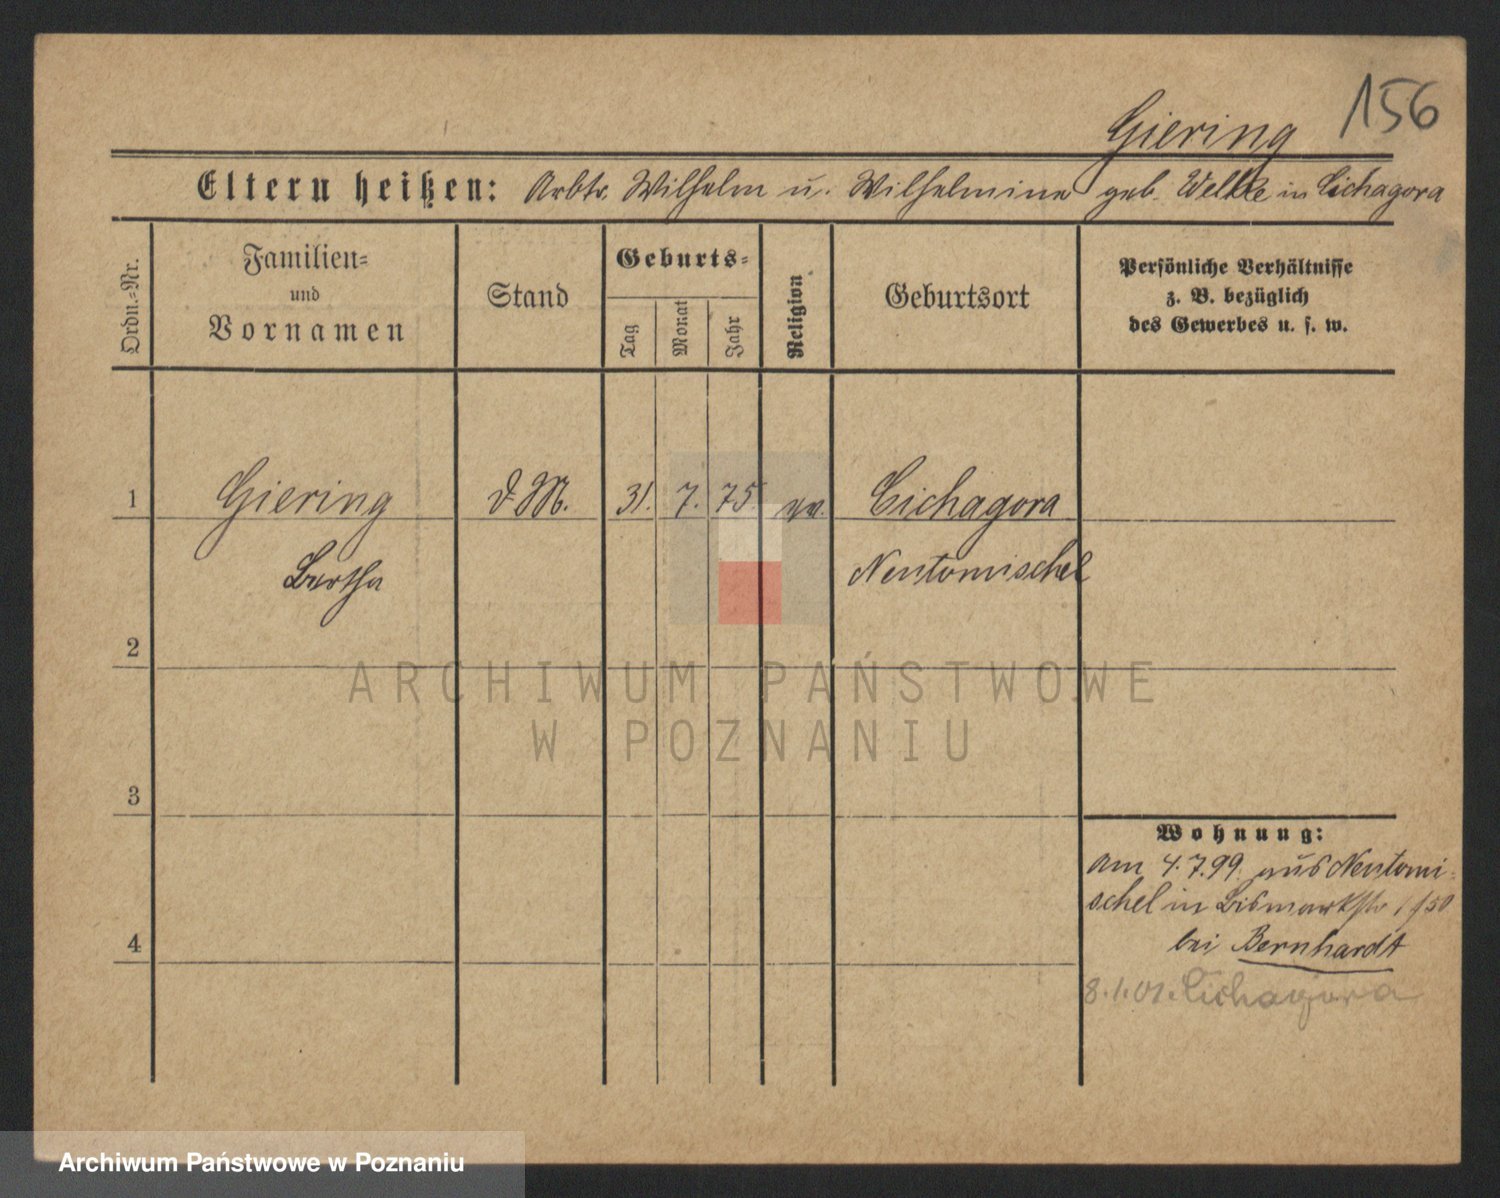 156
Giering
Eltern heißen: Arbtr. Wilhelm u. Wilhelmine geb. Welke in Cichagora
Ordn.-Nr.
Familien-
und
Vornamen
Stand
Geburts-
Tag
Monat
Jahr
Religion
Geburtsort
Persönliche Verhältnisse
z. B. bezüglich
des Gewerbes u. s. w.
1 Giering d. M. 31. 7. 75. ev. Cichagora
Bertha Neutomischel
2
ARCHIWUM PAŃSTWOWE
W POZNANIU
3
Wohnung:
am 4.7.99. aus Neutomi-
schel in Bismarckstr
4 bei Bernhardt
8.1.01. Cichagora
Archiwum Państwowe w Poznaniu